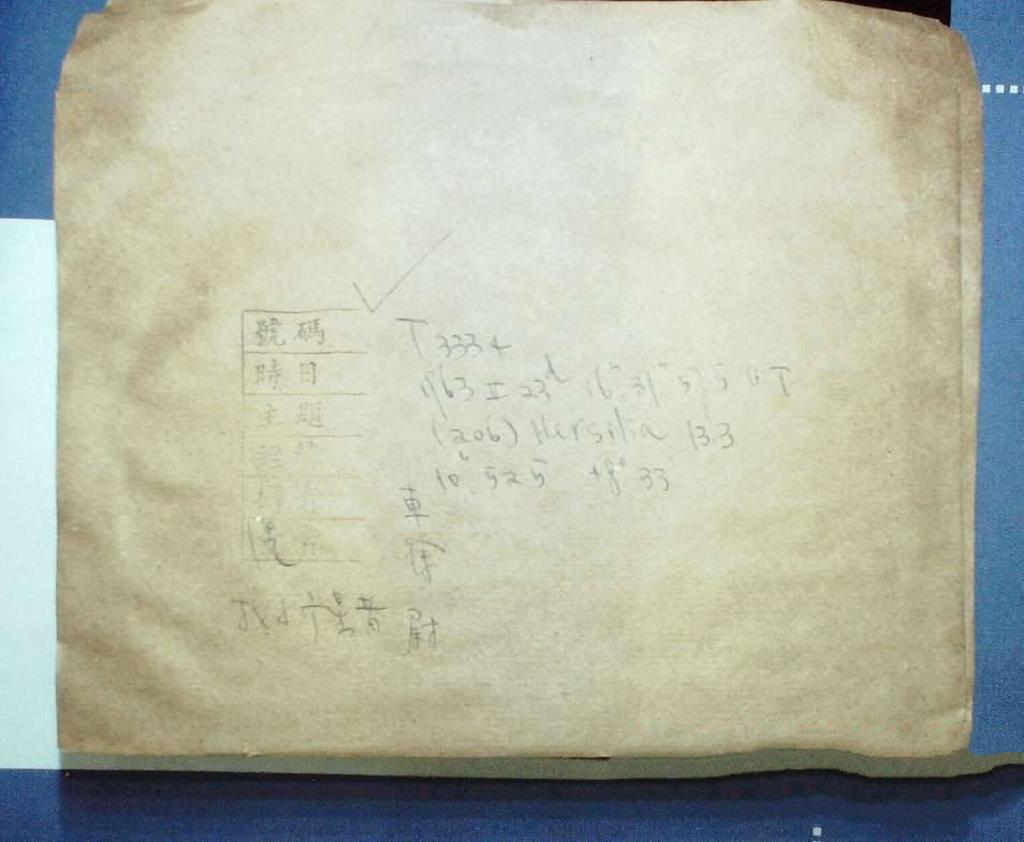 號碼 T 3334
時日 1963 II 23d 16h 31m 57.5 UT
主題 (206) Hersilia 13.3
10h 52.5 +8° 33
車
徐
找小行星者 尉